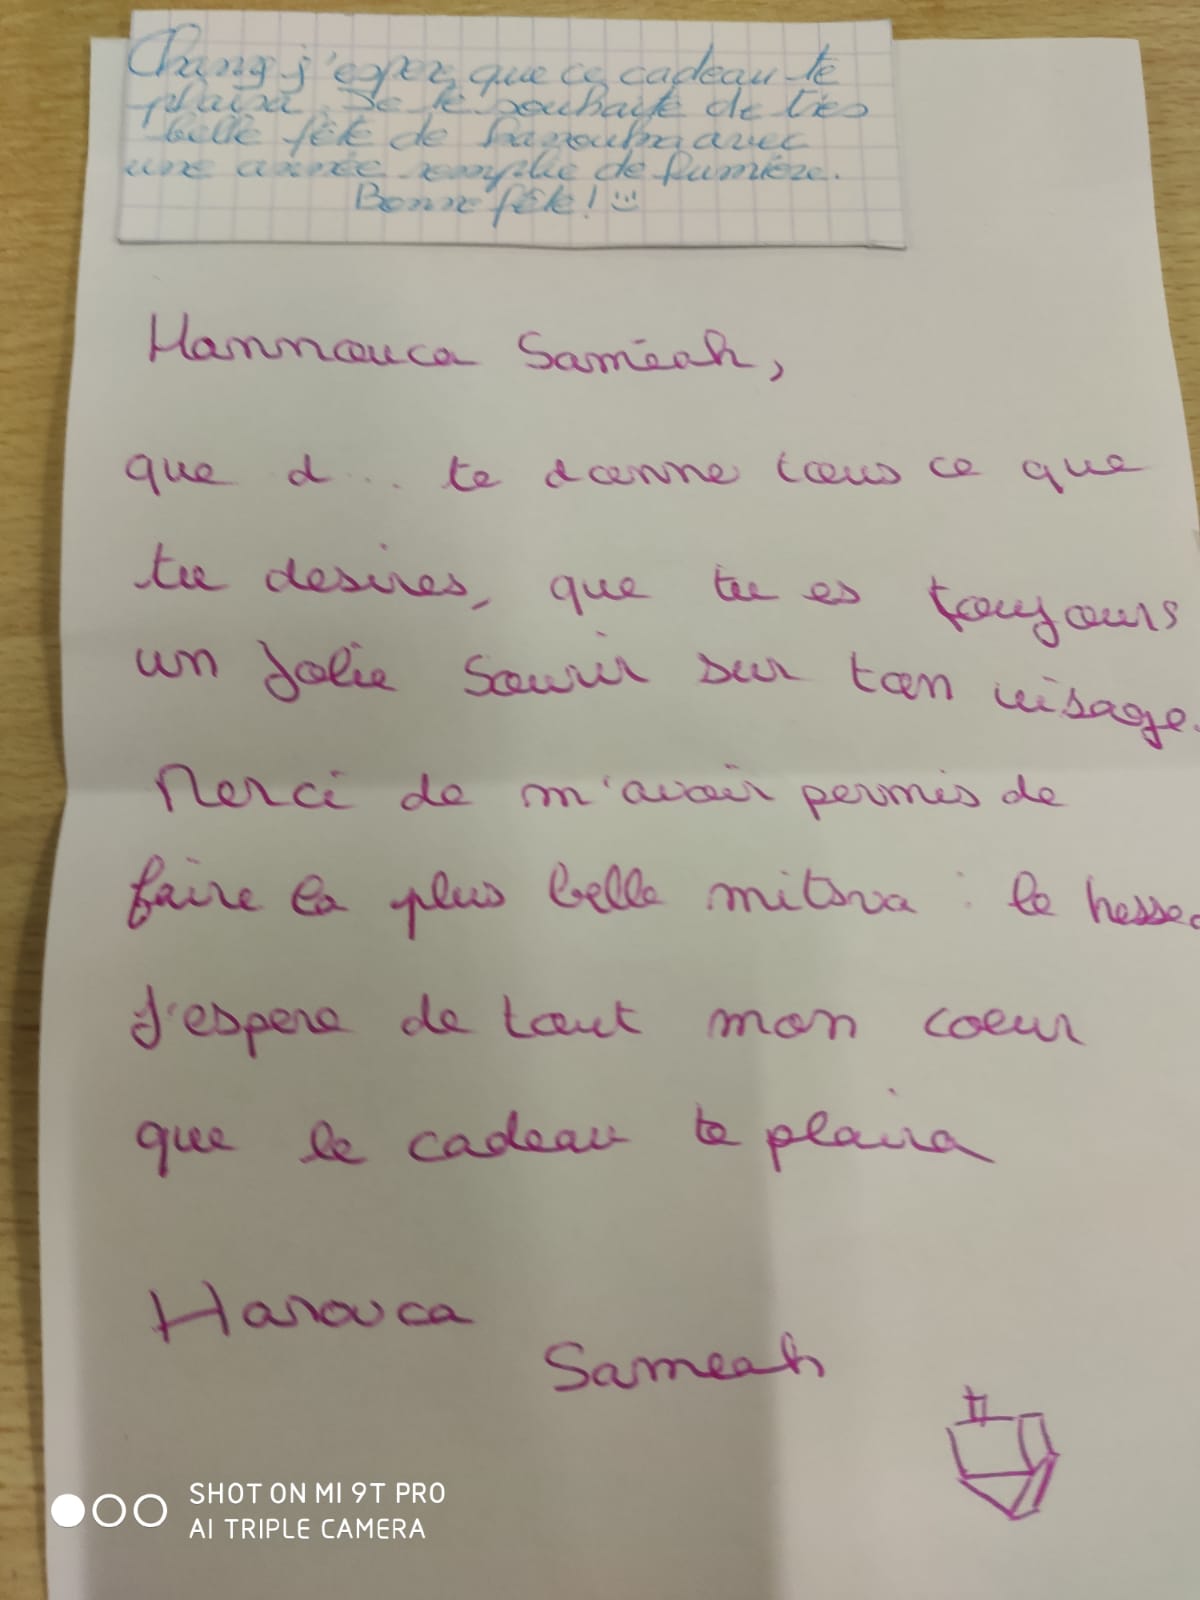 j'espere que ce cadeau te
plaira. Je te souhaite de très
belle fête de hanoukka avec
une année remplie de lumière.
Bonne fête! :)
Hannouca Saméah,
que d... te donne tous ce que
tu desires, que tu es toujours
un jolie sourir sur ton visage.
Merci de m'avoir permis de
faire la plus belle mitsva : le hessed
J'espere de tout mon coeur
que le cadeau te plaira
Hanouca
Sameah
SHOT ON MI 9T PRO
AI TRIPLE CAMERA